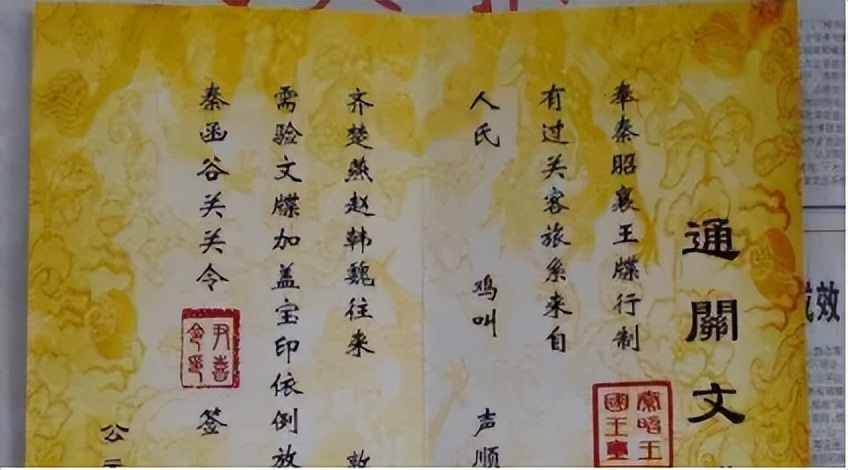 通關文
奉秦昭襄王牒行制
有过关客旅系来自
人氏 鸡叫 声顺
齐楚燕赵韩魏往来
需验文牒加盖宝印依例放
秦函谷关关令 签
尹喜
令印
公元
效